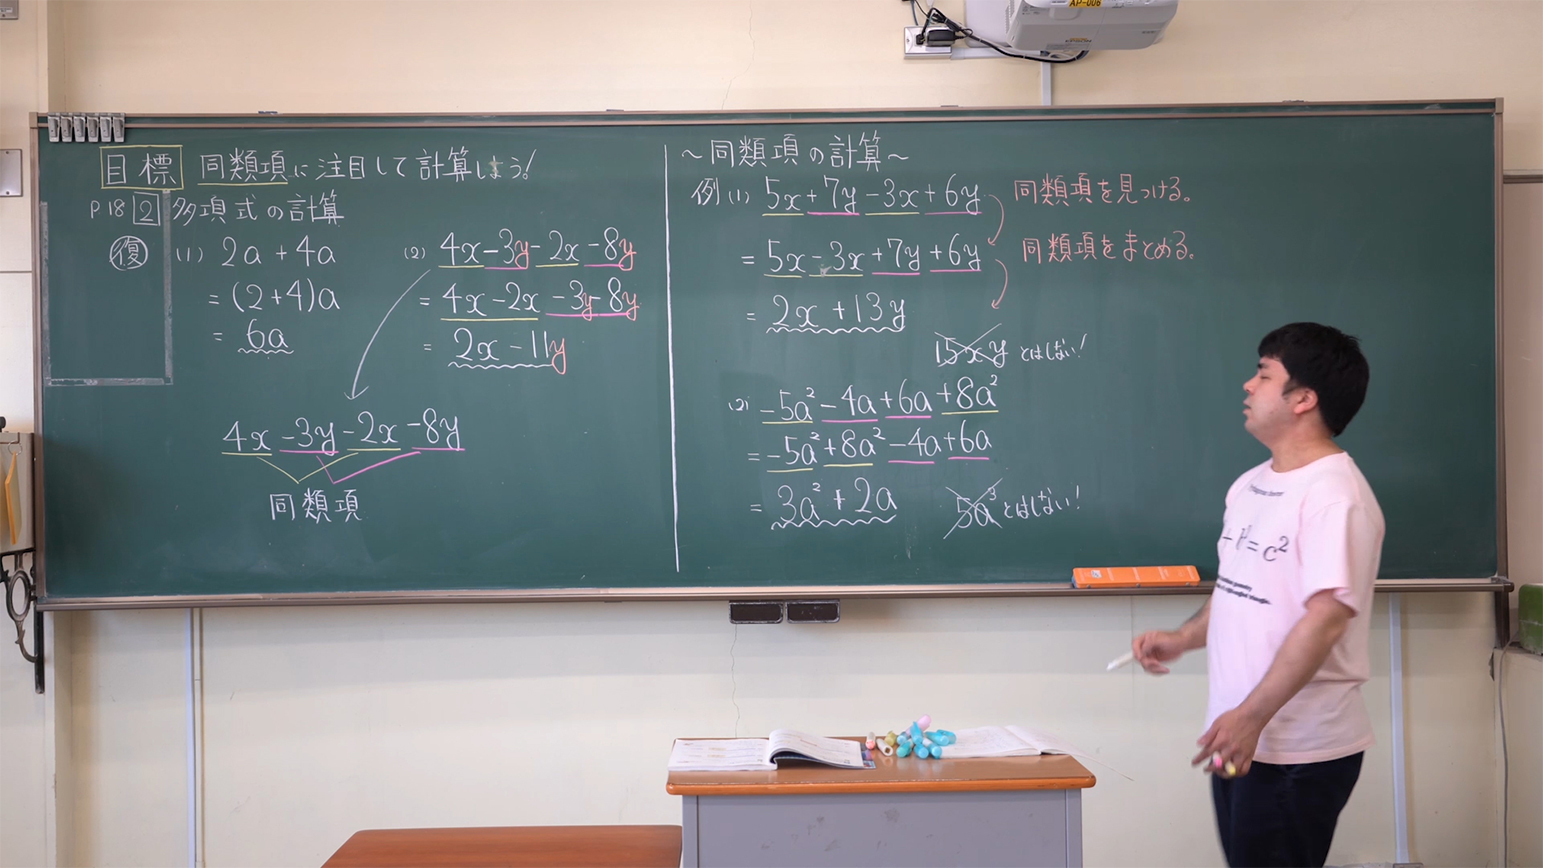 目標 同類項に注目して計算しよう!
P18 2 多項式の計算
復 (1) 2a+4a
=(2+4)a
=6a
(2) 4x-3y-2x-8y
=4x-2x-3y-8y
=2x-11y
4x-3y-2x-8y
同類項
~同類項の計算~
例(1) 5x+7y-3x+6y 同類項を見つける。
=5x-3x+7y+6y 同類項をまとめる。
=2x+13y
15xy とはしない!
(2) -5a²-4a+6a+8a²
=-5a²+8a²-4a+6a
=3a²+2a
5a³ とはしない!
AP-006
=c²